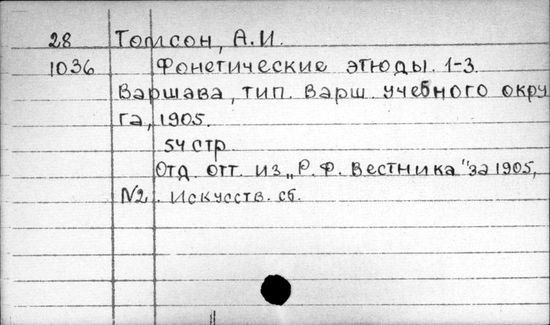 28 Томсон, А.И.
1036 Фонетические этюды. 1-3.
Варшава, тип. Варш. учебного окру
га, 1905.
54 стр
Отд. отт. из „Р. Ф. Вестника" за 1905,
№2. Искусств. сб.